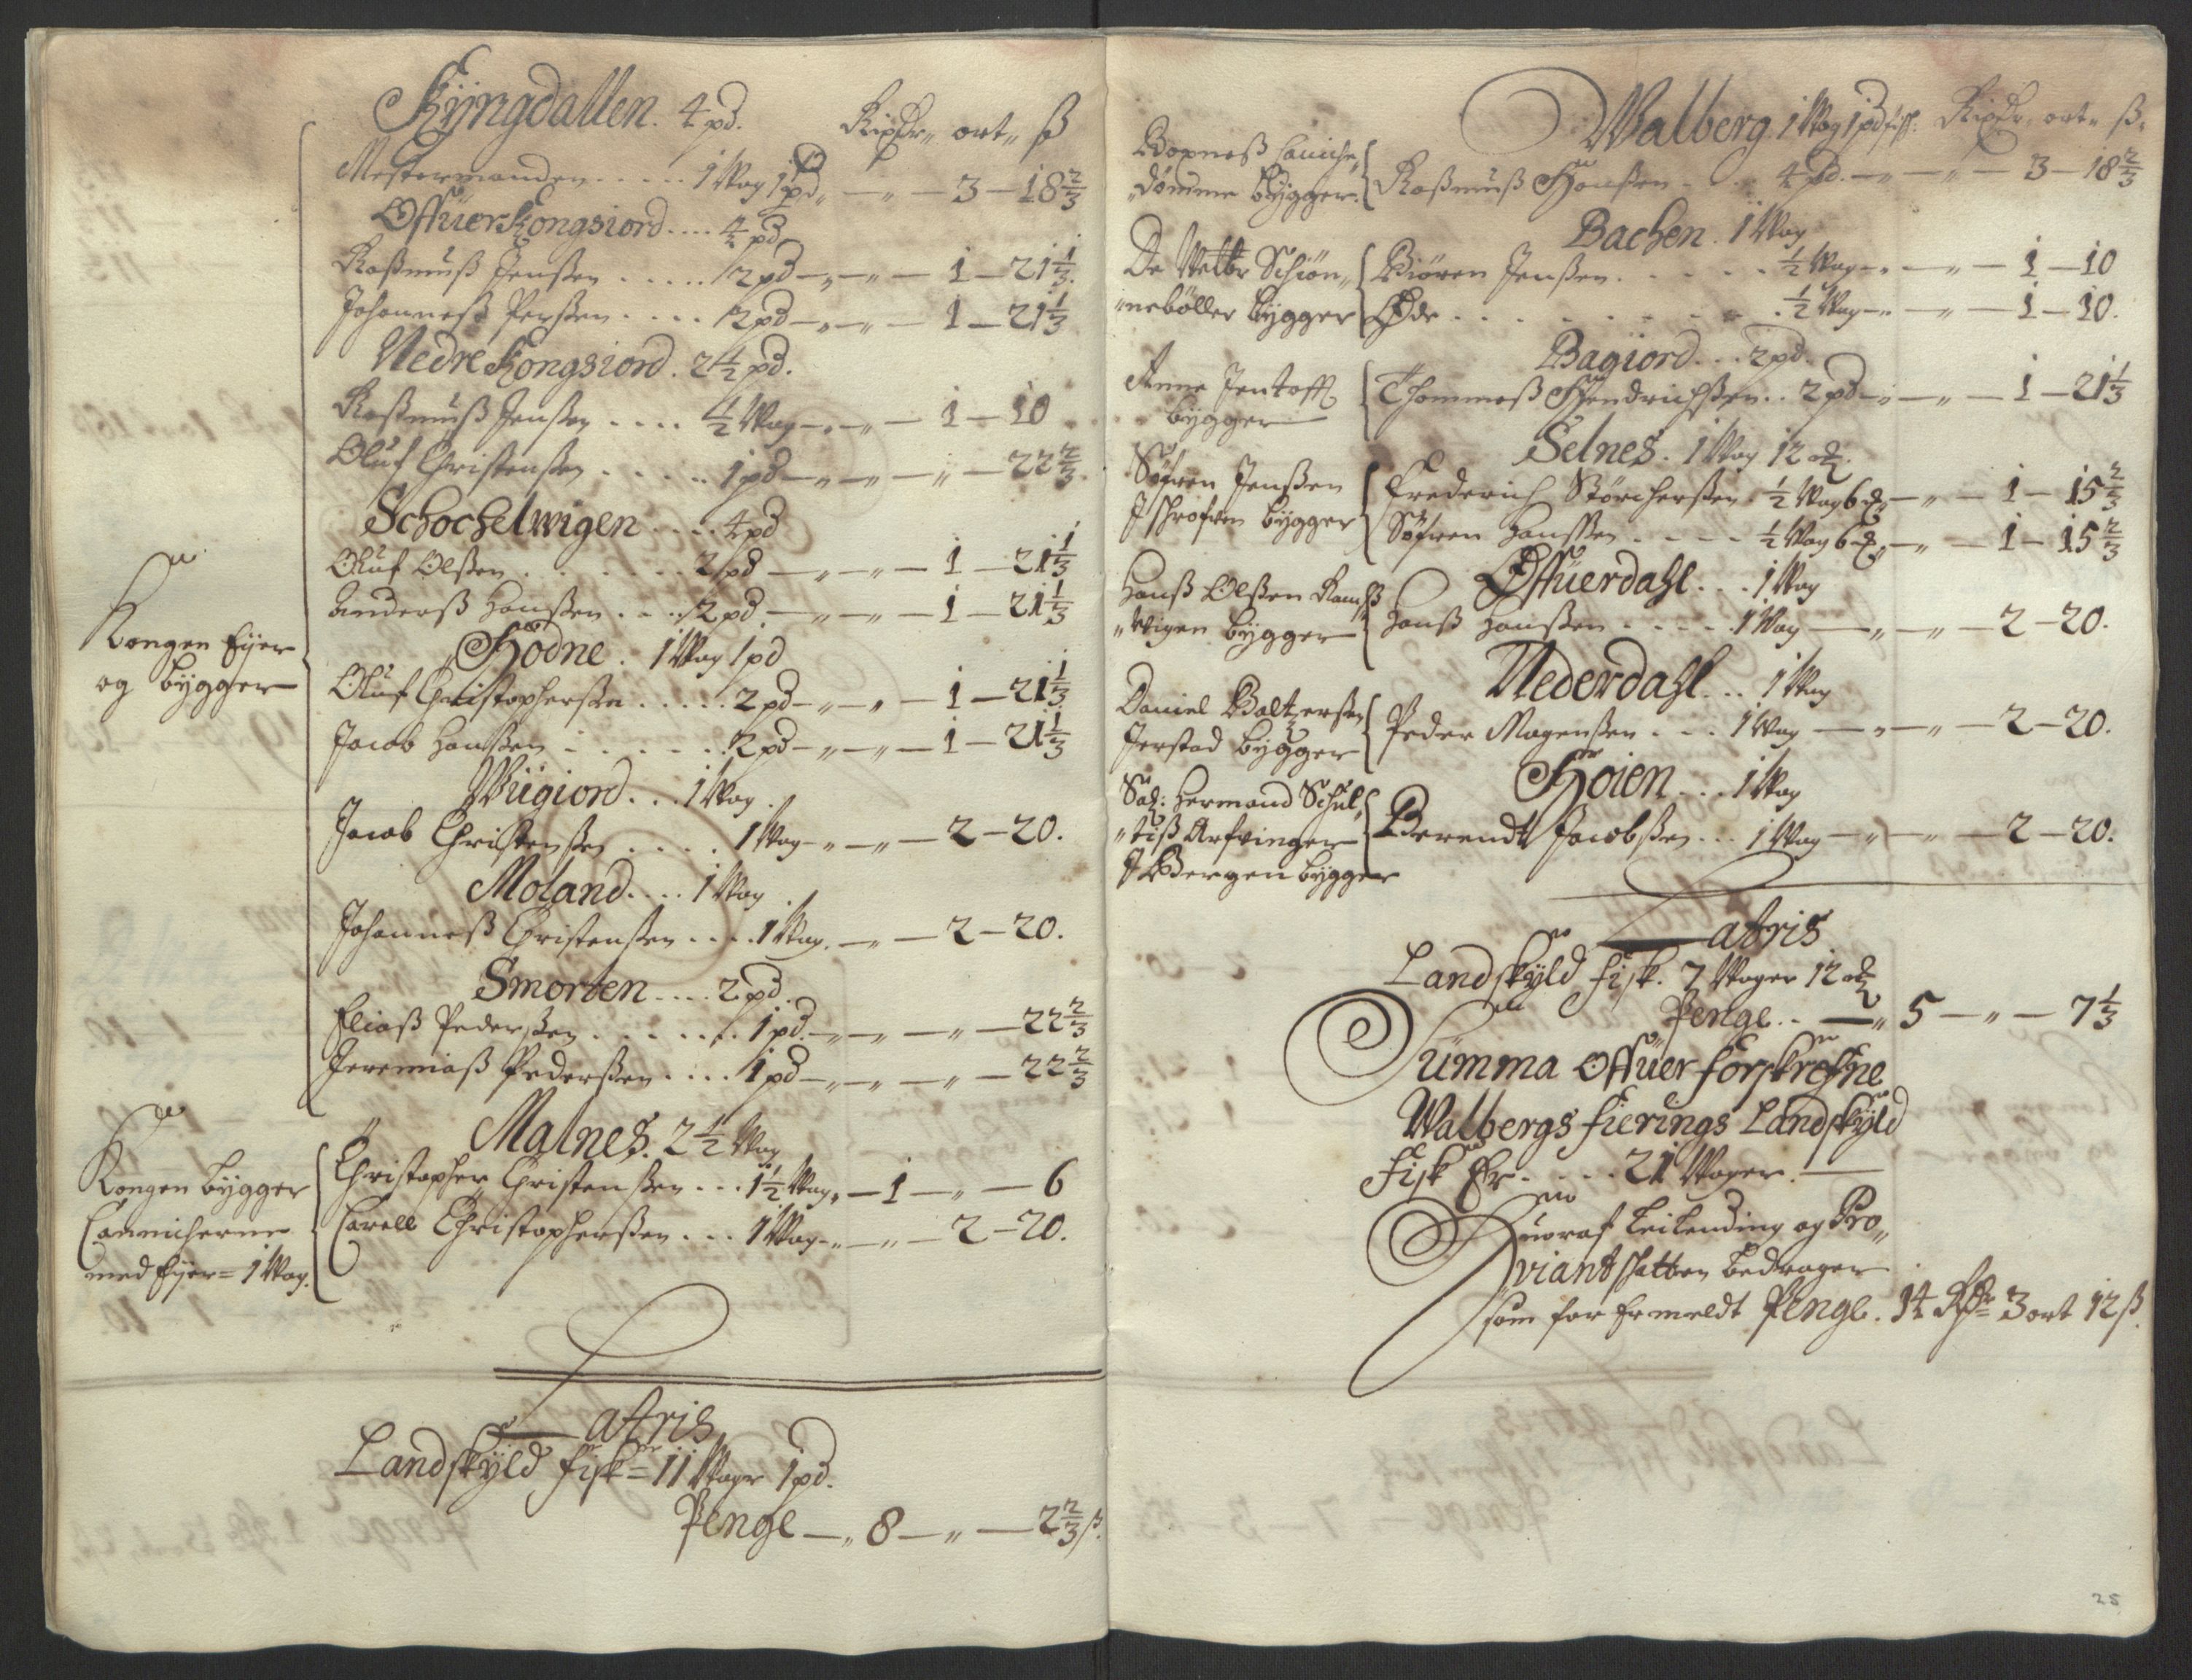 Kÿngdallen. 4 pd. Rixdr„ ort„ ß
Mestermanden . . . . . 1 Wog 1 pd„ — „ — 3 — 18 2/3
Offuer Kongsiord . . . . 4 pd
Rasmuß Jenßen . . . . . 2 pd — „ — „ — 1 — 21 1/3.
Johanneß Perßen . . . . 2 pd — „ — „ — 1 — 21 1/3
Nedre Kongsiord. 2 1/2 pd.
Rasmuß Jenßen . . . . 1/2 Wog — „ — „ — 1 — 10
Oluf Christenßen . . . . . 1 pd — „ — „ — „ — 22 2/3.
Schochelwigen . . . . 4 pd
Oluf Olßen . . . . . . . 2 pd — „ — „ — 1 — 21 1/3
Anderß Hanßen . . . . 2 pd. — „ — „ — 1 — 21 1/3
Kongen Eÿer
og bÿgger
Hodne. 1 Wog 1 pd
Oluf Christopherßen . . . . . 2 pd — „ — „ — 1 — 21 1/3
Jacob Hanßen . . . . . . 2 pd — „ — „ — 1 — 21 1/3
Wiigiord . . . 1 Wog.
Jacob Christenßen . . . . 1 Wog — „ — „ — 2 — 20.
Moland . . . . 1 Wog
Johanneß Christenßen . . . . 1 Wog. — „ — 2 — 20.
Smorten . . . . 2 pd.
Eliaß Pederßen . . . . . . . 1 pd. — „ — „ — „ — 22 2/3
Jeremiaß Pederßen . . . . 1 pd — „ — „ — „ — 22 2/3
Malnes. 2 1/2 Wog
Kongen bÿgger
Cannicherne
med Eÿer = 1 Wog.
Christopher Christenßen . . . 1 1/2 Wog„ — 1 — „ — 6
Carell Christopherßen . . . 1 Wog — „ — „ — 2 — 20.
Latris
Landskÿld fisk = 11 Woger 1 pd.
Penge — „ 8 — „ — 2 2/3 ß.
Walberg. 1 Wog 1 pd fisk. Rixdr„ ort„ ß„
Bopneß
dömme bÿgger.
Rasmuß Hanßen . . . 4 pd. — „ — „ — 3 — 18 2/3
Bachen. 1 Wog
De Wetbr Schiön„
„nebøller bÿgger
Biörn Jenßen . . . . . . 1/2 Wog — „ — „ — 1 — 10
Øde . . . . . . . . . 1/2 Wog — „ — „ — 1 — 10.
Bagiord . . . 2 pd.
Anne Jentoffs
bÿgger
Thommeß Hendrichßen . . 2 pd — „ — „ — 1 — 21 1/3
Selnes. 1 Wog 12 M
Søfren Jenßen
J bÿgger
Frederich Størcherßen. 1/2 Wog 6 M — „ — 1 — 15 2/3
Søfren Hanßen . . . . 1/2 Wog 6 M — „ — 1 — 15 2/3
Offuerdahl . . . 1 Wog
Hanß Olßen Ramß„
„wigen bÿgger
Hanß Hanßen . . . . . 1 Wog — „ — „ — 2 — 20.
Nederdahl . . . 1 Wog
Daniel Baltzerßen
Jerstad bÿgger
Peder Mogenßen . . . 1 Wog — „ — „ — 2 — 20.
Hoien . . . 1 Wog
Sal: Hermand Schul„
„tiß Arfvinger
J Bergen bÿgger
Berendt Jacobßen . . . 1 Wog — „ — „ — 2 — 20.
Latris
Landskÿld fisk. 7 Woger 12 M
Penge. — „ 5 — „ — 7 1/3
Summa offuer forskrefne
Walbergs fierings Landskÿld
fisk Er . . . . 21 Woger.
Huoraf Leilending og Pro„
viant skatten bedrager
som for Ermeldt Penge. 14 Rdr 3 ort 12 ß
25